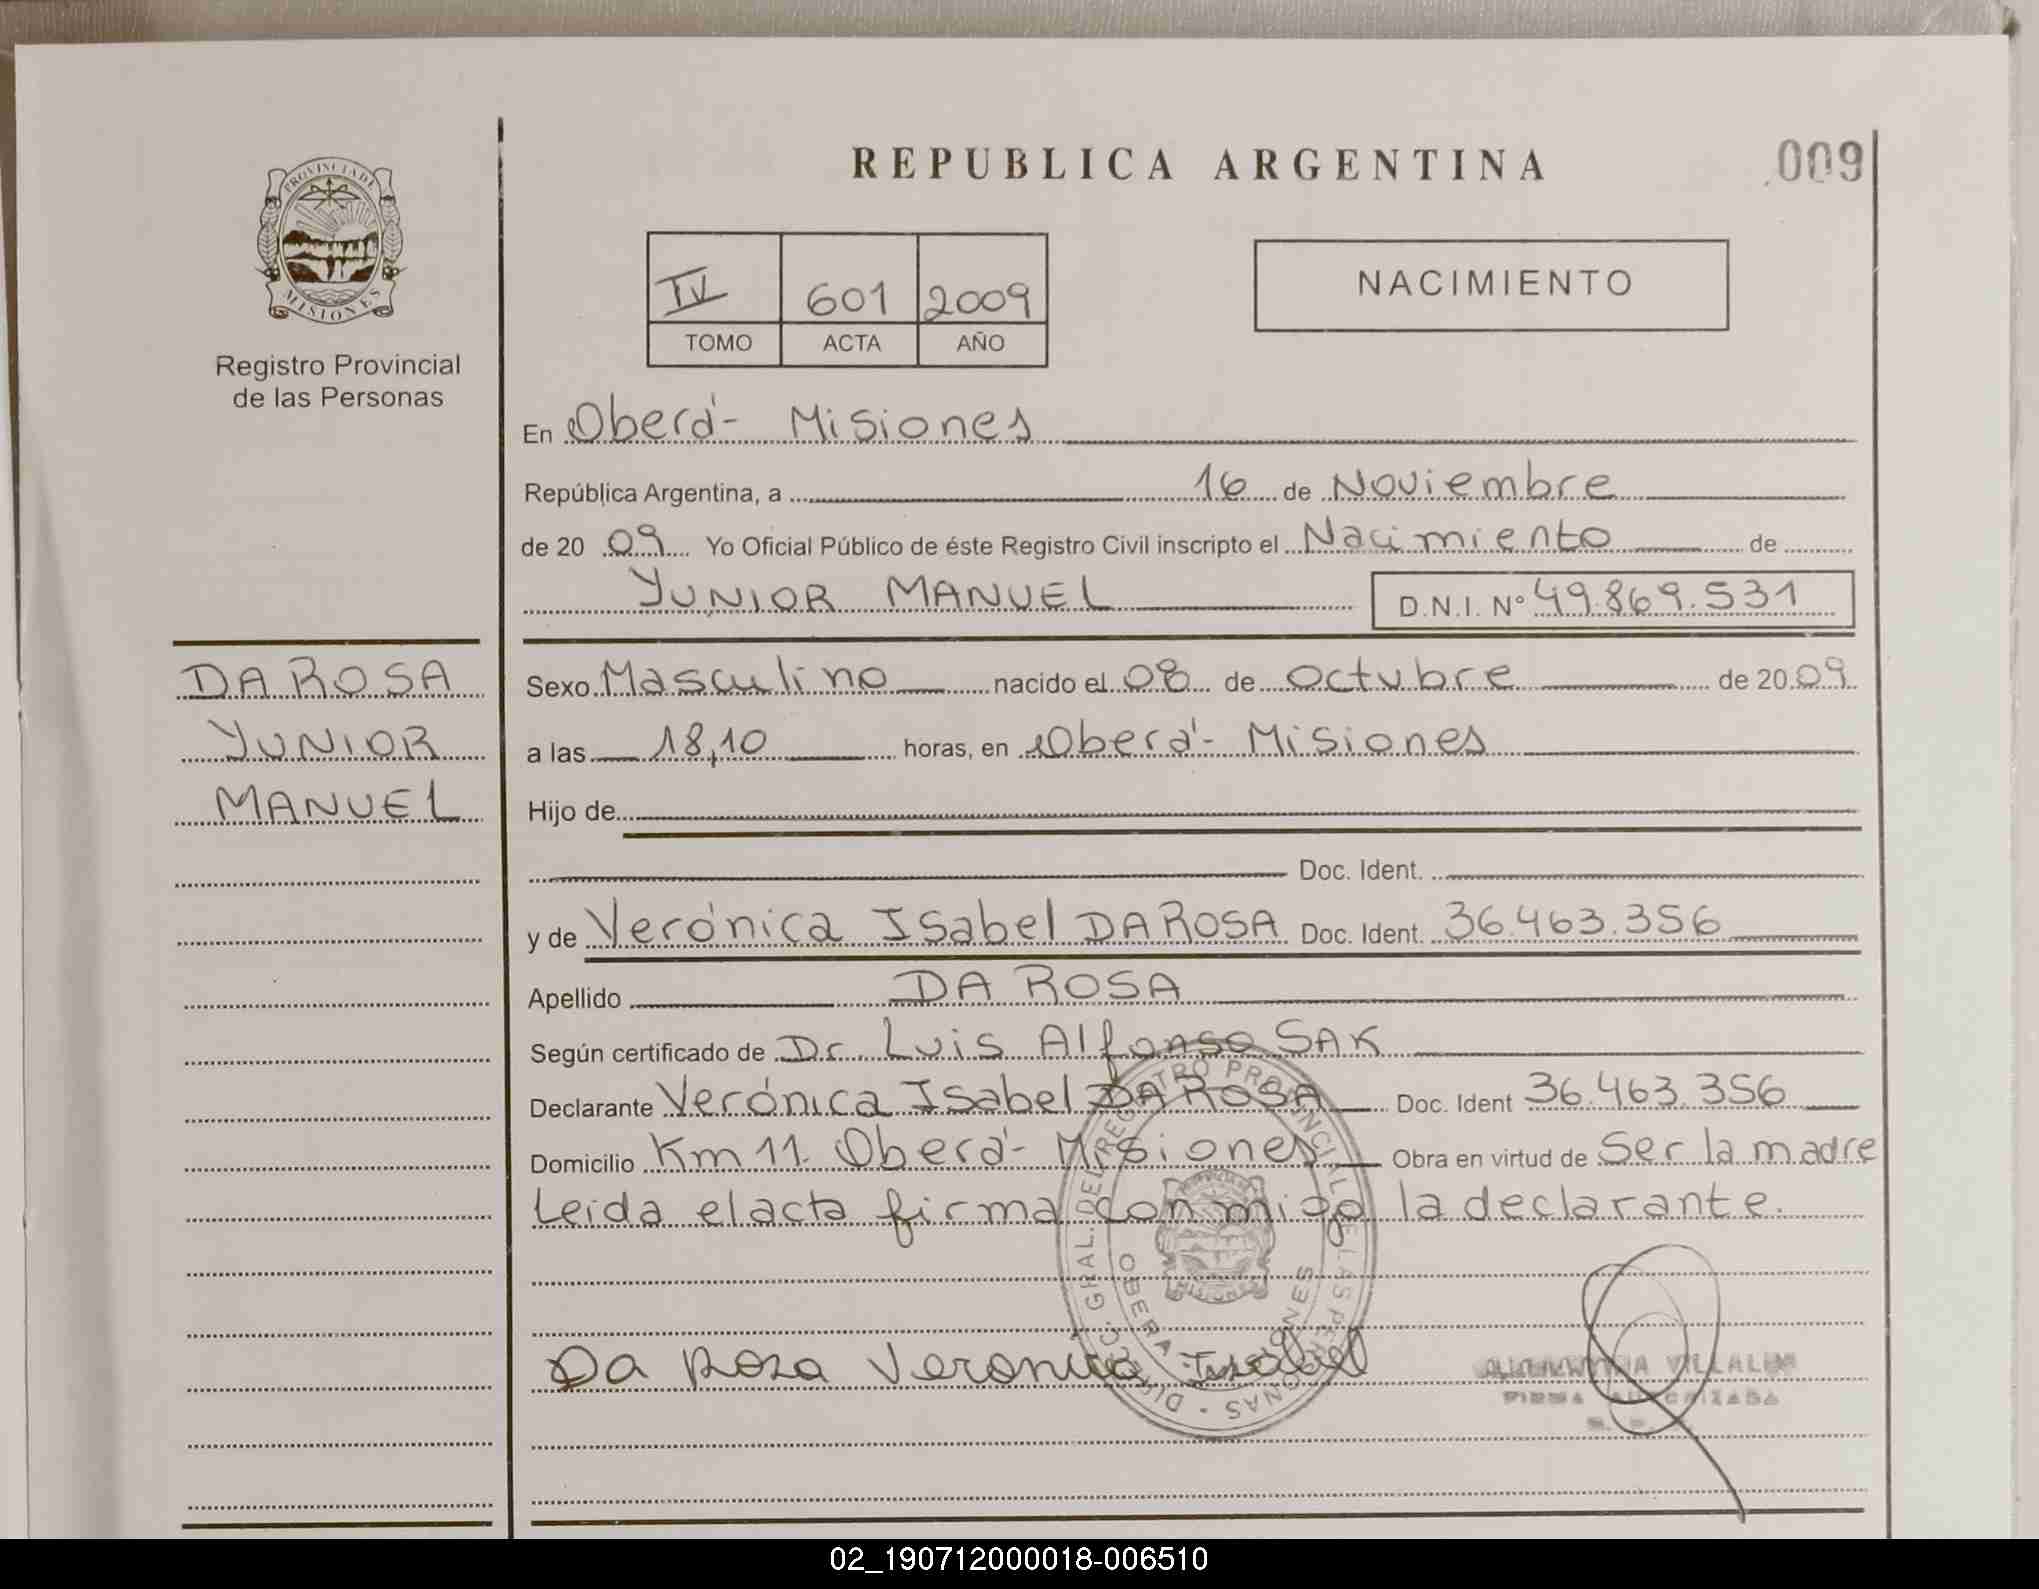 REPUBLICA ARGENTINA
009
PROVINCIA DE
MISIONES
Registro Provincial
de las Personas
IV 601 2009
TOMO ACTA AÑO
NACIMIENTO
En Oberá- Misiones
República Argentina, a 16 de Noviembre
de 20 09 Yo Oficial Público de éste Registro Civil inscripto el Nacimiento de
YUNIOR MANUEL D.N.I. Nº 49.869.531
DA ROSA
YUNIOR
MANUEL
Sexo Masculino nacido el 08 de Octubre de 20 09
a las 18,10 horas, en Oberá- Misiones
Hijo de
Doc. Ident.
y de Verónica Isabel DA ROSA Doc. Ident. 36.463.356
Apellido DA ROSA
Según certificado de Dr. Luis Alfonso SAK
Declarante Verónica Isabel DA ROSA Doc. Ident 36.463.356
Domicilio Km 11. Oberá- Misiones Obra en virtud de Ser la madre
Leida el acta firma conmigo la declarante.
DIREC. GRAL. DEL REGISTRO PROVINCIAL DE LAS PERSONAS
OBERA - MISIONES
MISIONES
Da Rosa Veronica Isabel
FIRMA AUTORIZADA
02_190712000018-006510